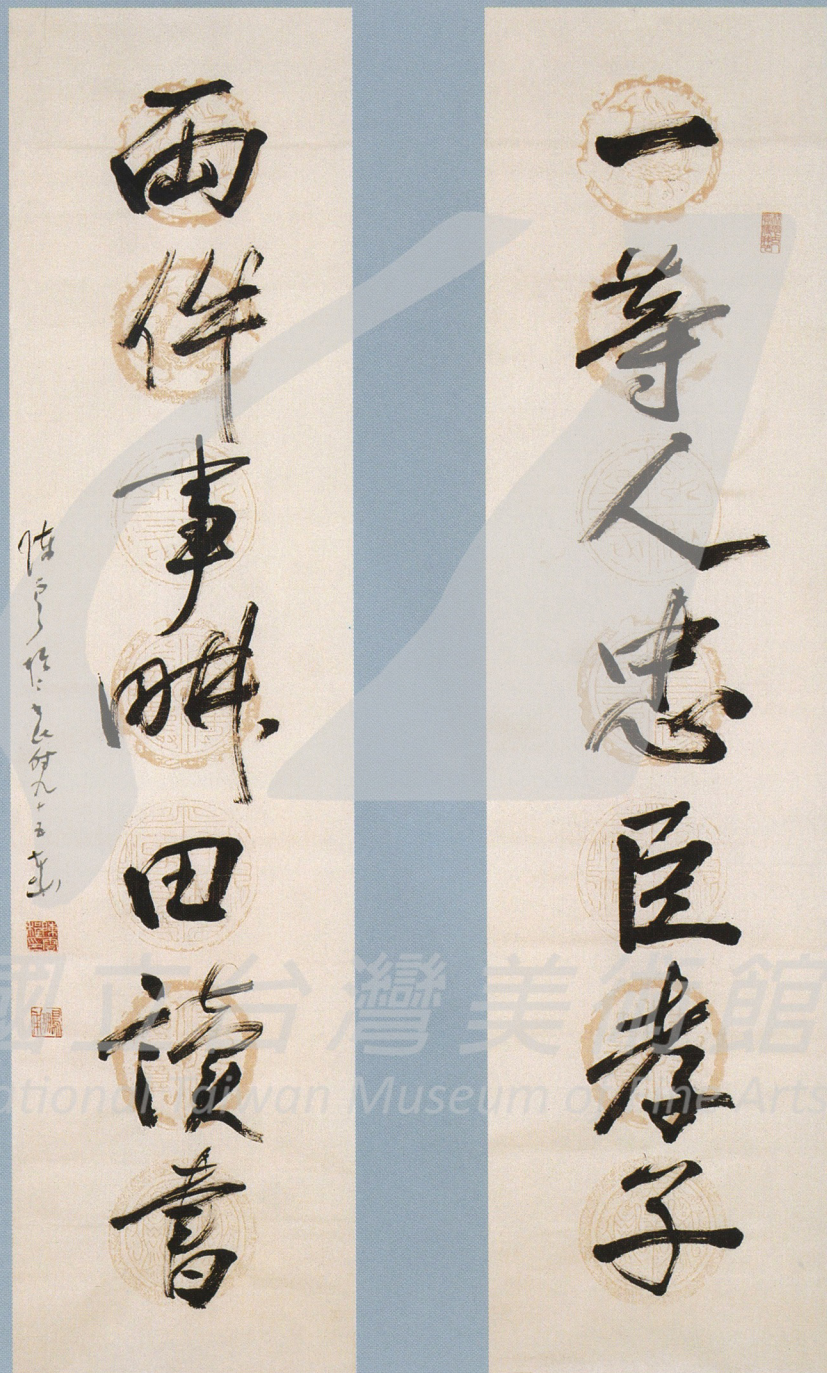 一等人忠臣孝子
兩件事畊田讀書
陳雲程時九十五歲
國立台灣美術館
ational Taiwan Museum of Fine Arts